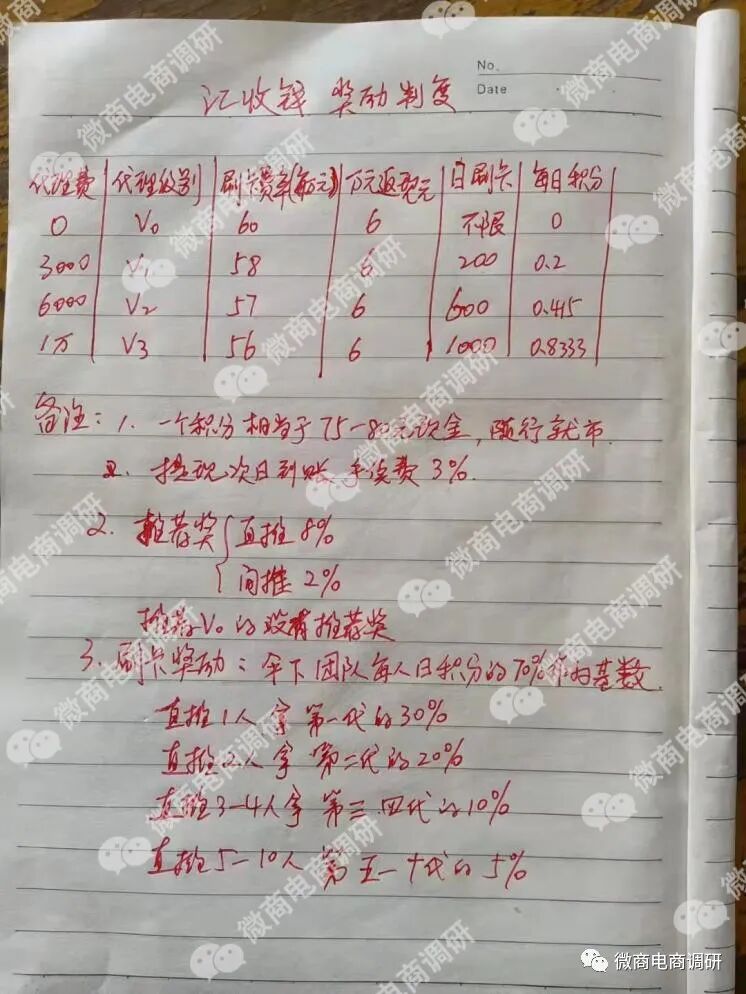 No.
Date
汇收钱 奖励制度
代理费 代理级别 刷卡费率(每万元) 万元返现元 日刷卡 每日积分
0 V0 60 6 不限 0
3000 V1 58 6 200 0.2
6000 V2 57 6 600 0.415
1万 V3 56 6 1000 0.8333
备注: 1. 一个积分相当于75-80元现金,随行就市.
提现次日到账,手续费3%.
2. 推荐奖 { 直推8%
间推2%
推荐V0的没有推荐奖
3. 刷卡奖励: 伞下团队每人日积分的70%作为基数.
直推1人拿第一代的30%
直推2人拿第二代的20%
直推3-4人拿第三.四代的10%
直推5-10人第五一十代的5%
微商电商调研